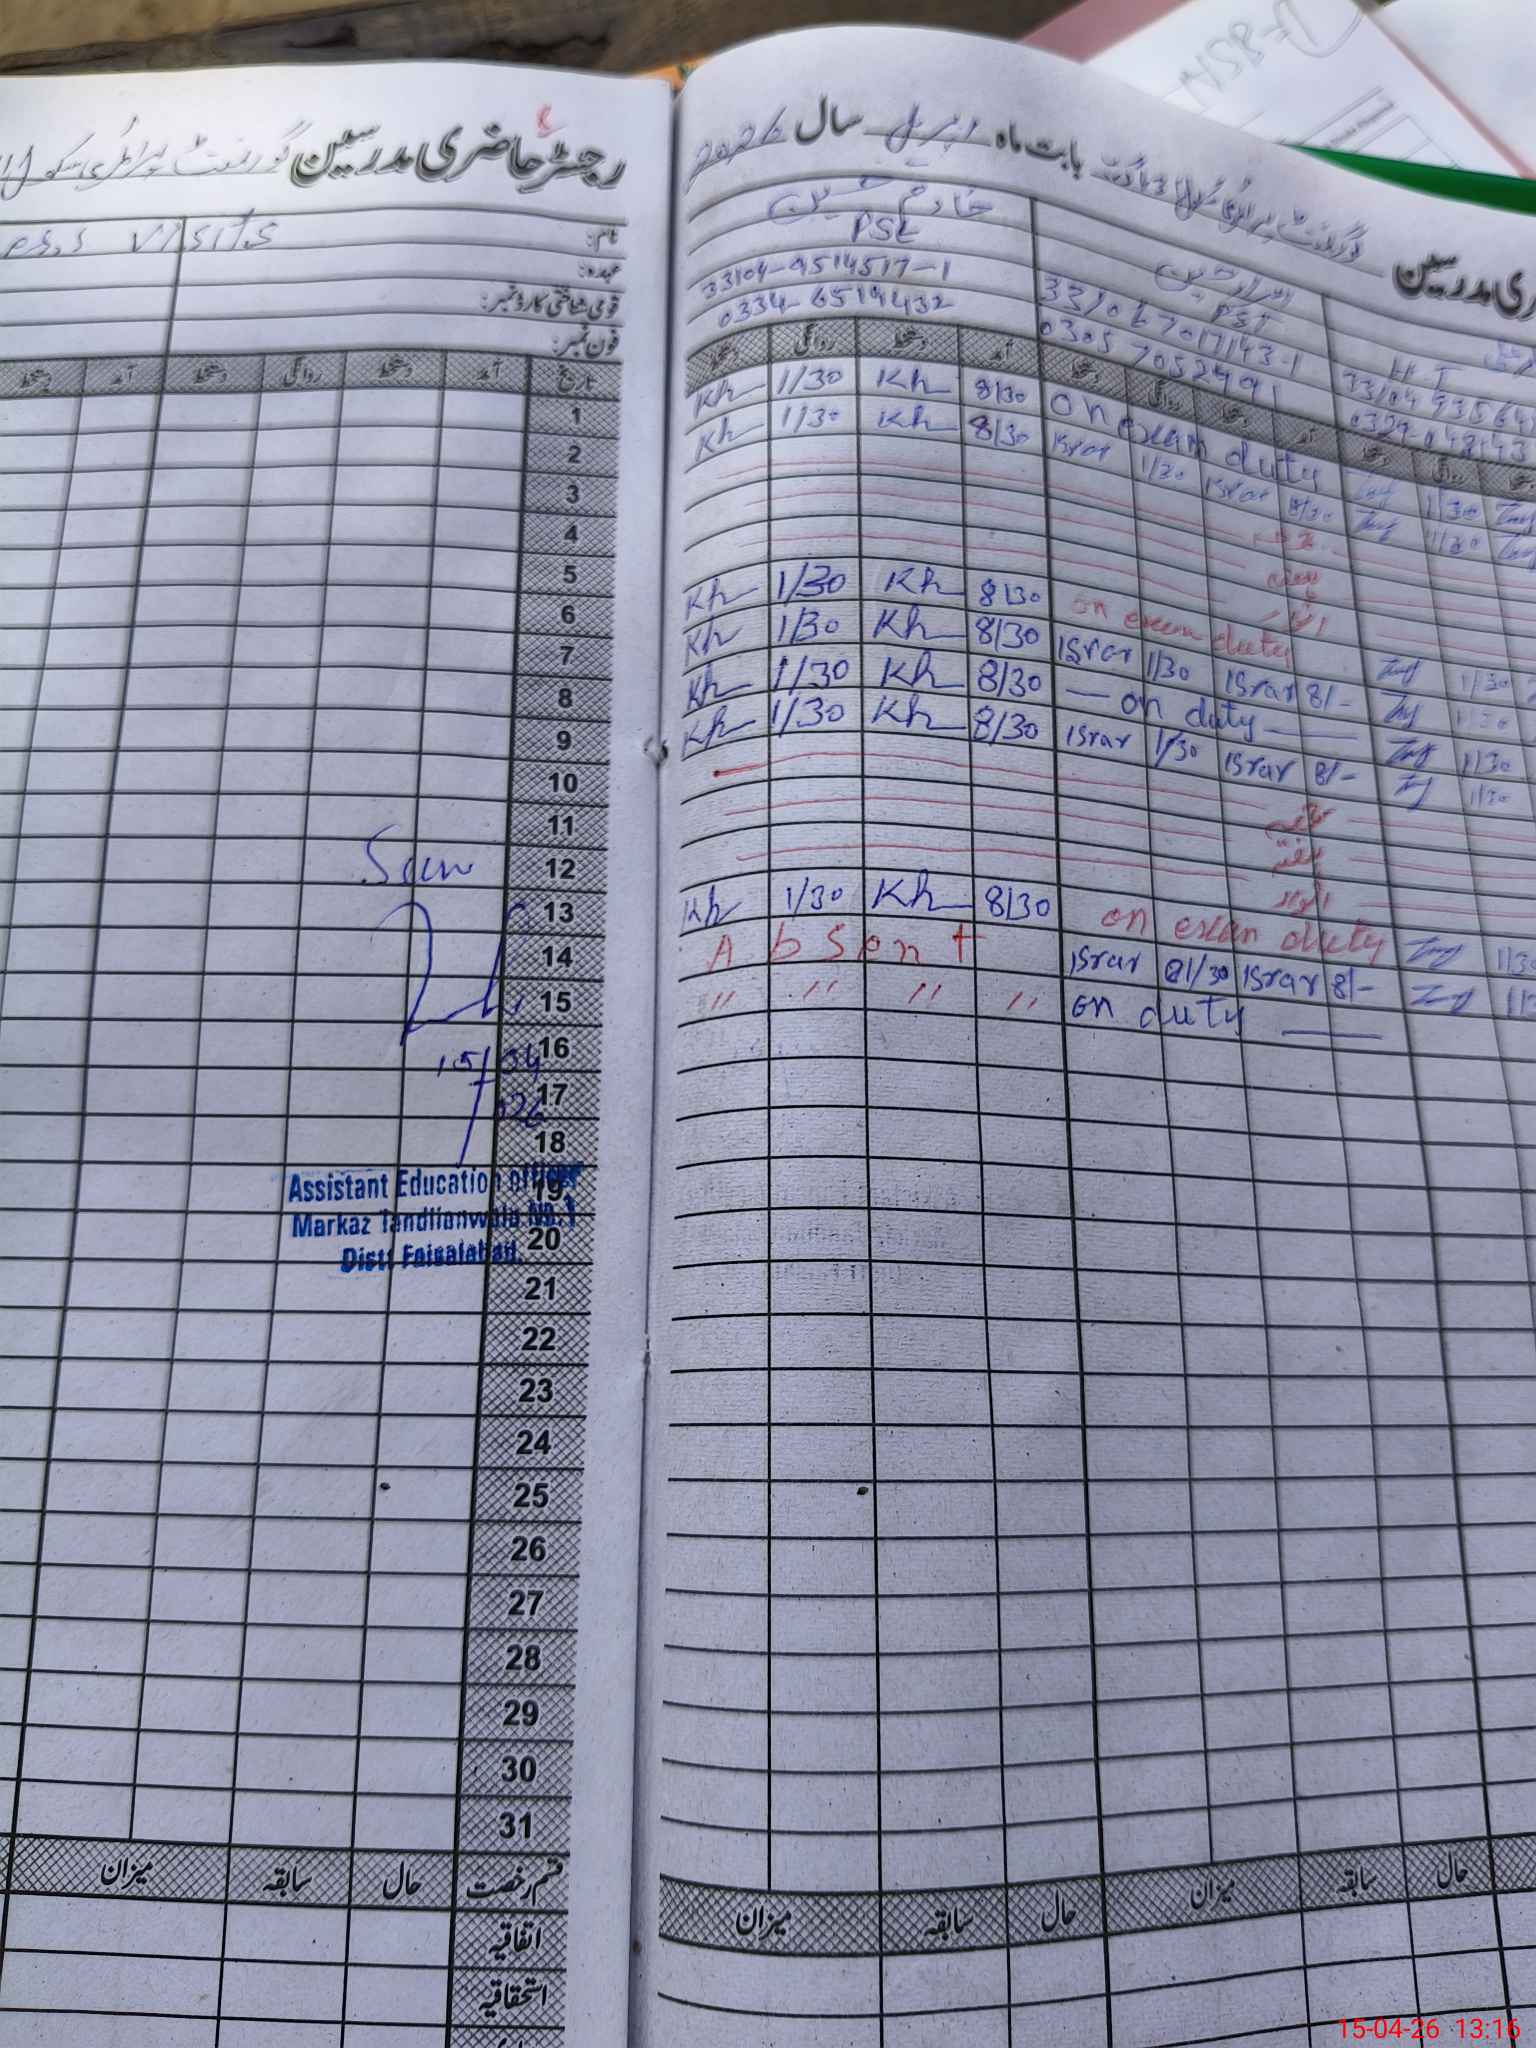 رجسٹر حاضری مدرسین گورنمنٹ پرائمری سکول
visits
نام:
عہدہ:
قومی شناختی کارڈ نمبر:
فون نمبر:
تاریخ آمد دستخط روانگی دستخط آمد دستخط
1
2
3
4
5
6
7
8
9
10
11
12
13
14
15
16
17
18
19
20
21
22
23
24
25
26
27
28
29
30
31
Seen
15/04
026
Assistant Education officer
Markaz Tandlianwala No.1
Distt Faisalabad.
قسم رخصت حال سابقہ میزان
اتفاقیہ
استحقاقیہ
ری مدرسین گورنمنٹ پرائمری سکول بابت ماہ اپریل سال 2026
خادم حسین
PST
33104-9514517-1
0334-6519432
PST
33106 7017143-1
0305 7052491
H.T
آمد دستخط روانگی دستخط
Kh 1/30 Kh 8/30 on exam duty
Kh 1/30 Kh 8/30 Israr 1/30 Israr 8/30 1/30
Kh 1/30 Kh 8/30 on exam duty 1/30
Kh 1/30 Kh 8/30 Israr 1/30 Israr 8/- 1/30
Kh 1/30 Kh 8/30 — on duty — 1/30
Kh 1/30 Kh 8/30 Israr 1/30 Israr 8/- 1/30
ہفتہ
اتوار
Kh 1/30 Kh 8/30 on exam duty
Absent Israr 1/30 Israr 8/-
" " " " on duty —
حال سابقہ میزان حال سابقہ میزان
15-04-26 13:16